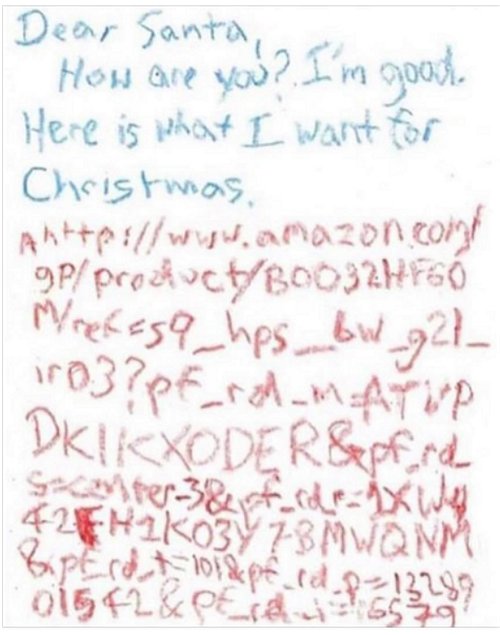 Dear Santa,
How are you? I'm good.
Here is what I want for
Christmas.
A http://www.amazon.com/
gp/product/B0032HF60
M/ref=s9_hps_bw_g21_
ir03?pf_rd_m=ATVP
DKIKX0DER&pf_rd_
s=center-3&pf_rd_r=1XWy
42FH1K03Y78MWQNM
&pf_rd_t=101&pf_rd_p=13289
01542&pf_rd_i=16579